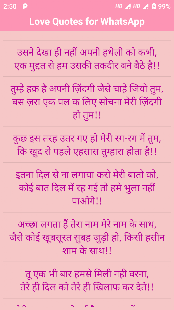 2:50
99%
Love Quotes for WhatsApp
उसने देखा ही नहीं अपनी हथेली को कभी,
एक मुद्दत से हम उसकी तकदीर बने बैठे हैं!!
तुम्हे हक है अपनी ज़िंदगी जैसे चाहे जियो तुम,
बस ज़रा एक पल के लिए सोचना मेरी ज़िंदगी
हो तुम!!
कुछ इस तरह उतर गए हो मेरी रग-रग में तुम,
कि खुद से पहले एहसास तुम्हारा होता है!!
इतना दिल से ना लगाया करो मेरी बातो को,
कोई बात दिल में रह गई तो हमे भुला नहीं
पाओगे!!
अच्छा लगता हैं तेरा नाम मेरे नाम के साथ,
जैसे कोई खूबसूरत सुबह जुड़ी हो, किसी हसीन
शाम के साथ!!
तू एक भी बार हमसे मिली नही वरना,
तेरे ही दिल को तेरे ही खिलाफ कर देते!!